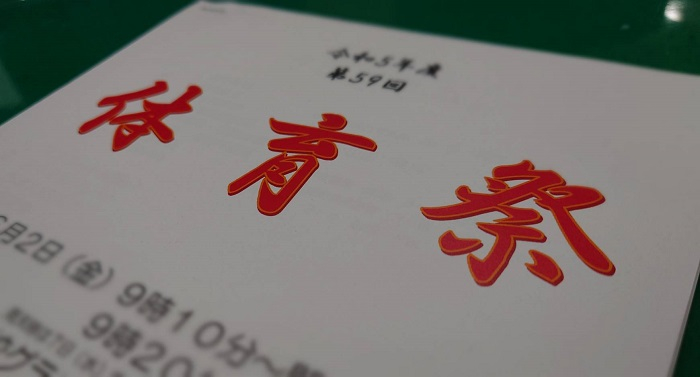 令和5年度
第59回
体育祭
月2日（金）9時10分～開
9時20
グラ